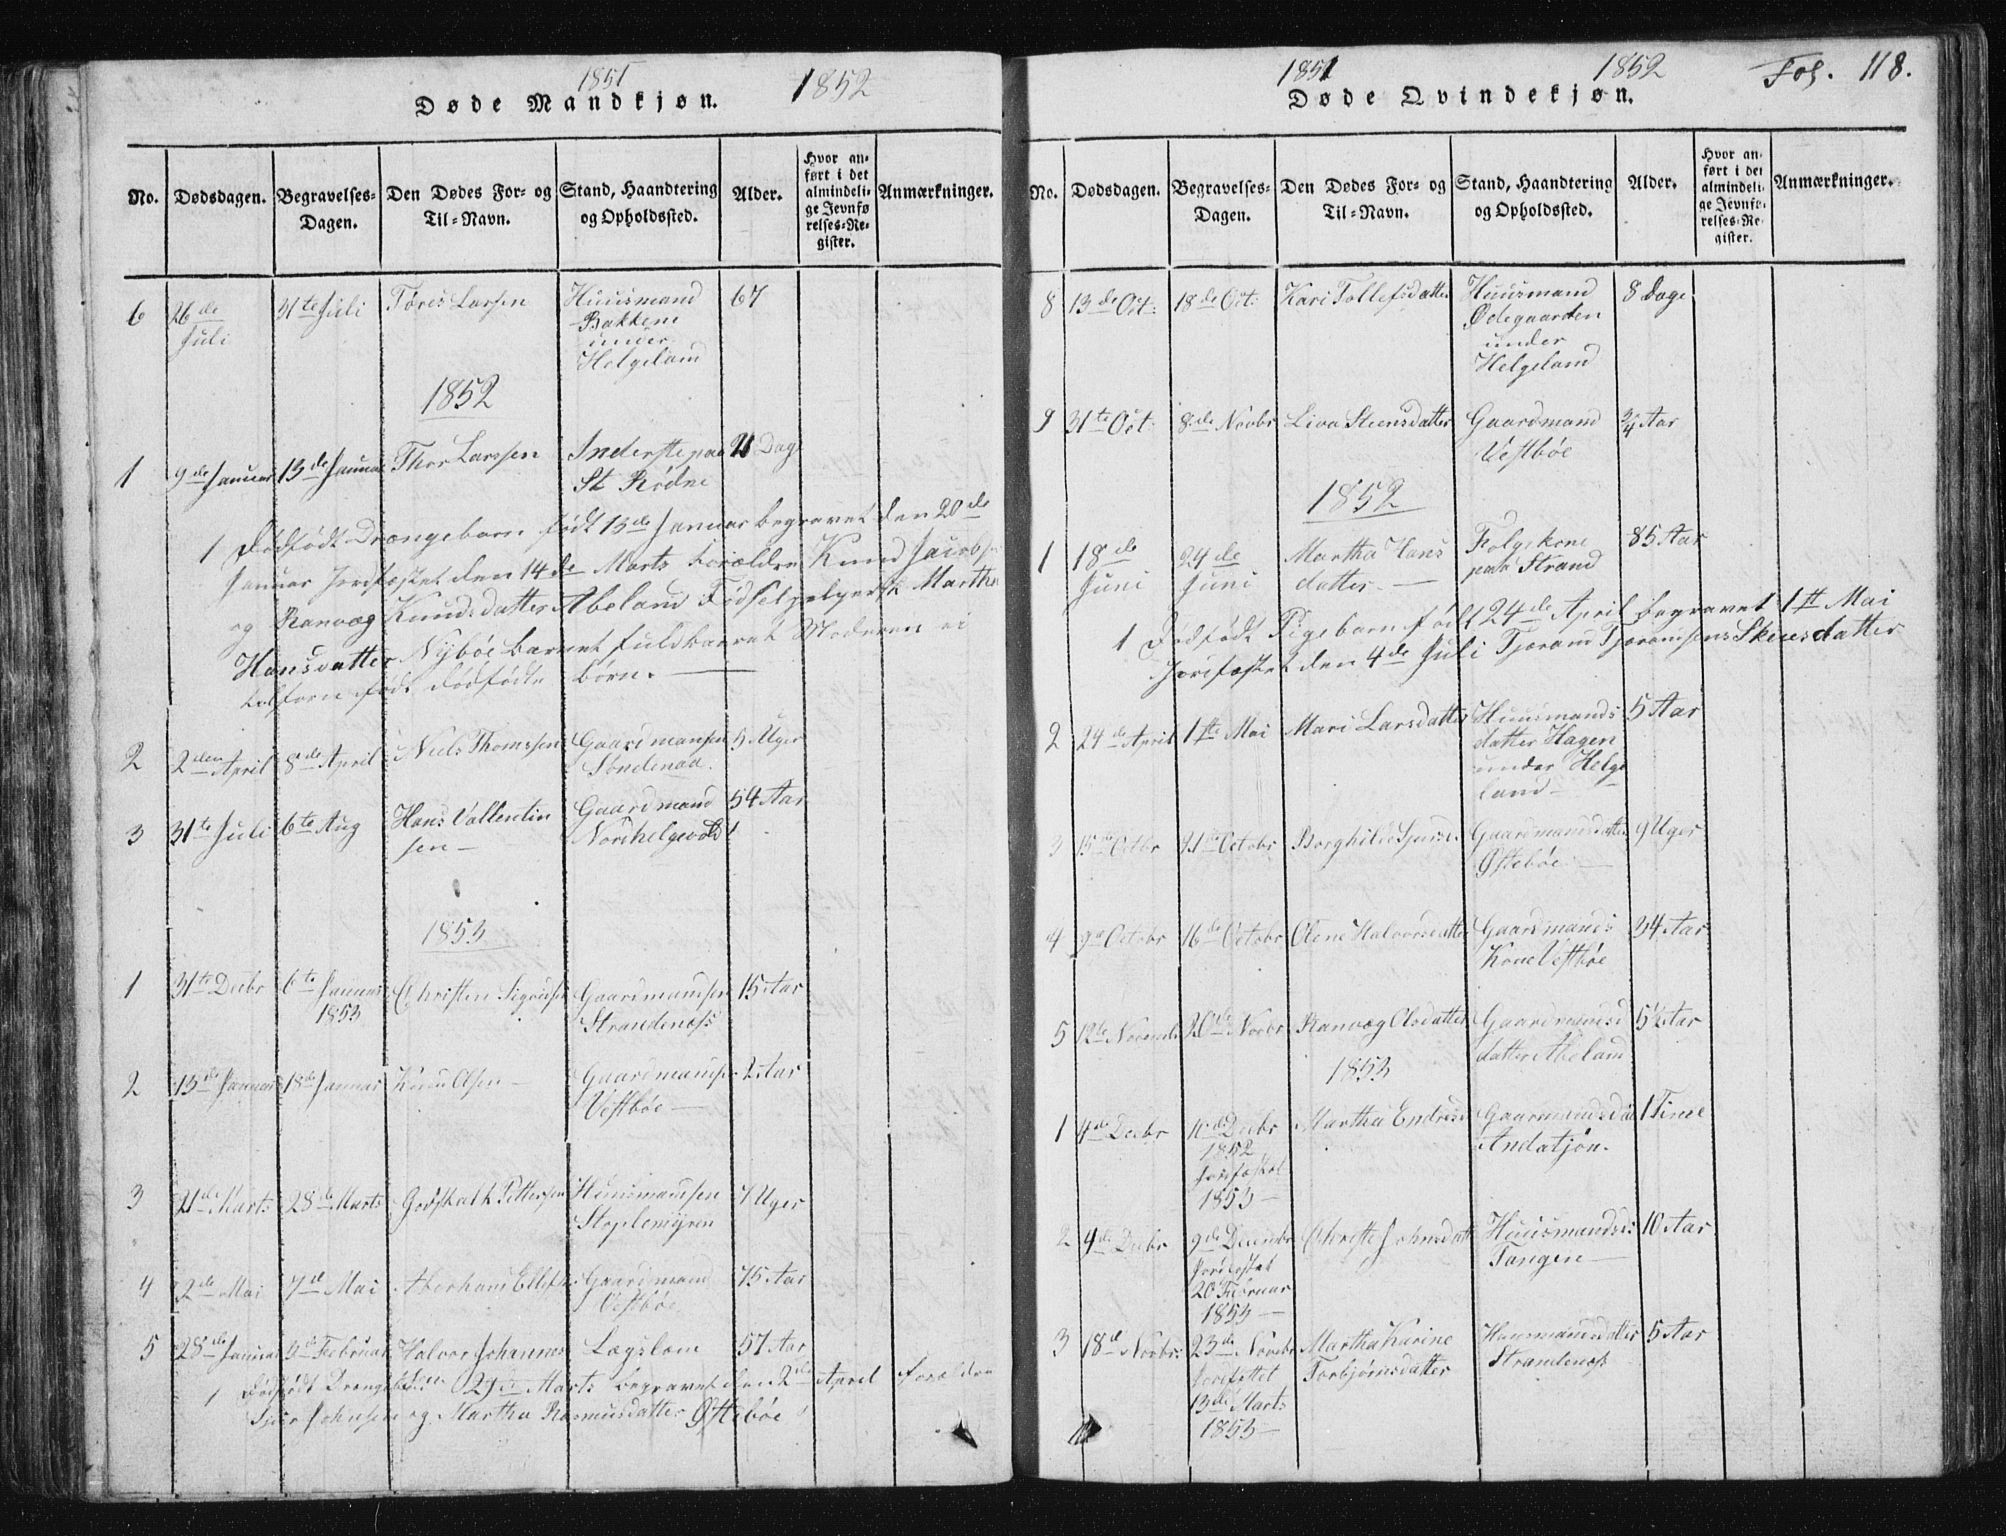 1851
1852
Døde Mandkjøn.
No.
Dødsdagen.
Begravelses-Dagen.
Den Dødes For- og Til-Navn.
Stand, Haandtering og Opholdssted.
Alder.
Hvor anført i det almindelige Jevnførelses-Register.
Anmærkninger.
6 26de Juli 31te Juli Tøres Larsen Huusmand 67
Bakkene
under
Helgeland
1852
1 9de Januar 13de Januar Thor Larssen Inderste paa 21 Dag
St Rødne
1 Dødfødt Drengebarn født 15de Januar begravet den 20de
Januar Jordfæstet den 14de Marts Forældre Knud Jacobs
og Ranvæg Knudsdatter Abeland Fødselhjelperske Martha
Hansdatter Nybøe Barnet fuldbaaret Moderen ei
tilforn født dødfødte børn.
2 2den April 8de April Niels Thomssen Gaardmansøn 5 Uger
Søndenaa.
3 31te Juli 6te Aug Hans Vallentin Gaardmand 54 Aar
sen Nordhelgevold
1853
1 31te Decbr 6te Januar Christen Sigvards Gaardmandsøn 15 Aar
1853 Strandenæss
2 13de Januar 18de Januar Knud Olsen Gaardmandsøn 2 Aar
Vestbøe
3 21de Marts 28de Marts Godskalk Pettersen Huusmandsøn 7 Uger
Stoplemyren
4 2de Mai 7d Mai Aberham Ellefs Gaardmand 75 Aar
Vestbøe
5 28de Januar Februar Halvor Johannes Lægslem 57 Aar
1 Dødfødt Drengebarn 29de Marts begravet den 2de April Forældre
Sjur Johnsen og Martha Rasmusdatter Østebøe
1851
1852
Fol. 118.
Døde Qvindekjøn.
No.
Dødsdagen.
Begravelses-Dagen.
Den Dødes For- og Til-Navn.
Stand, Haandtering og Opholdssted.
Alder.
Hvor anført i det almindelige Jevnførelses-Register.
Anmærkninger.
8 13de Oct: 18de Oct: Kari Tollefsdatter Huusmand 8 Dage
Ødegaarden
under
Helgeland
9 31te Oct: 8de Novbr Liva Steensdatter Gaardmand 3/4 Aar
Vestbøe
1852
1 18de Juni 24de Juni Martha Hans Folgekone 85 Aar
datter paa Strand
1 Dødfødt Pigebarn født 24de April begravet 1st Mai
Jordfæstet den 4de Juli Tjerand Tjerandsens Skeiesdatter
2 24de April 1ste Mai Mari Larsdatter Huusmands 5 Aar
datter Hagen
under Helge
land
3 15de Octbr 21de Octobr Borghilde Sjursd Gaardmandsdatter 9 Uger
Østebøe
4 9de Octobr 16de Octobr Olene Halvorsdatter Gaardmands 34 Aar
Kone Vestbøe
5 12te Novemb 20de Novbr Ranvæg Olsdatter Gaardmands 5½ Aar
datter Abeland
1853
1 4de Decbr 10de Decbr Martha Endresd Gaarmandsda 1 Time
1852 Andatjøn.
Jordfæstet
1853
2 4de Decbr 9de Decembr Christi Johnsdat Huusmandsd 10 Aar
Jordfæstet Tangen
20 Februar
1853
3 18d Novbr. 23de Novbr Martha Karine Huusmandsdatter 5 Aar
Jordfæstet Torbjørnsdatter Strandenæss
13de Marts
1853